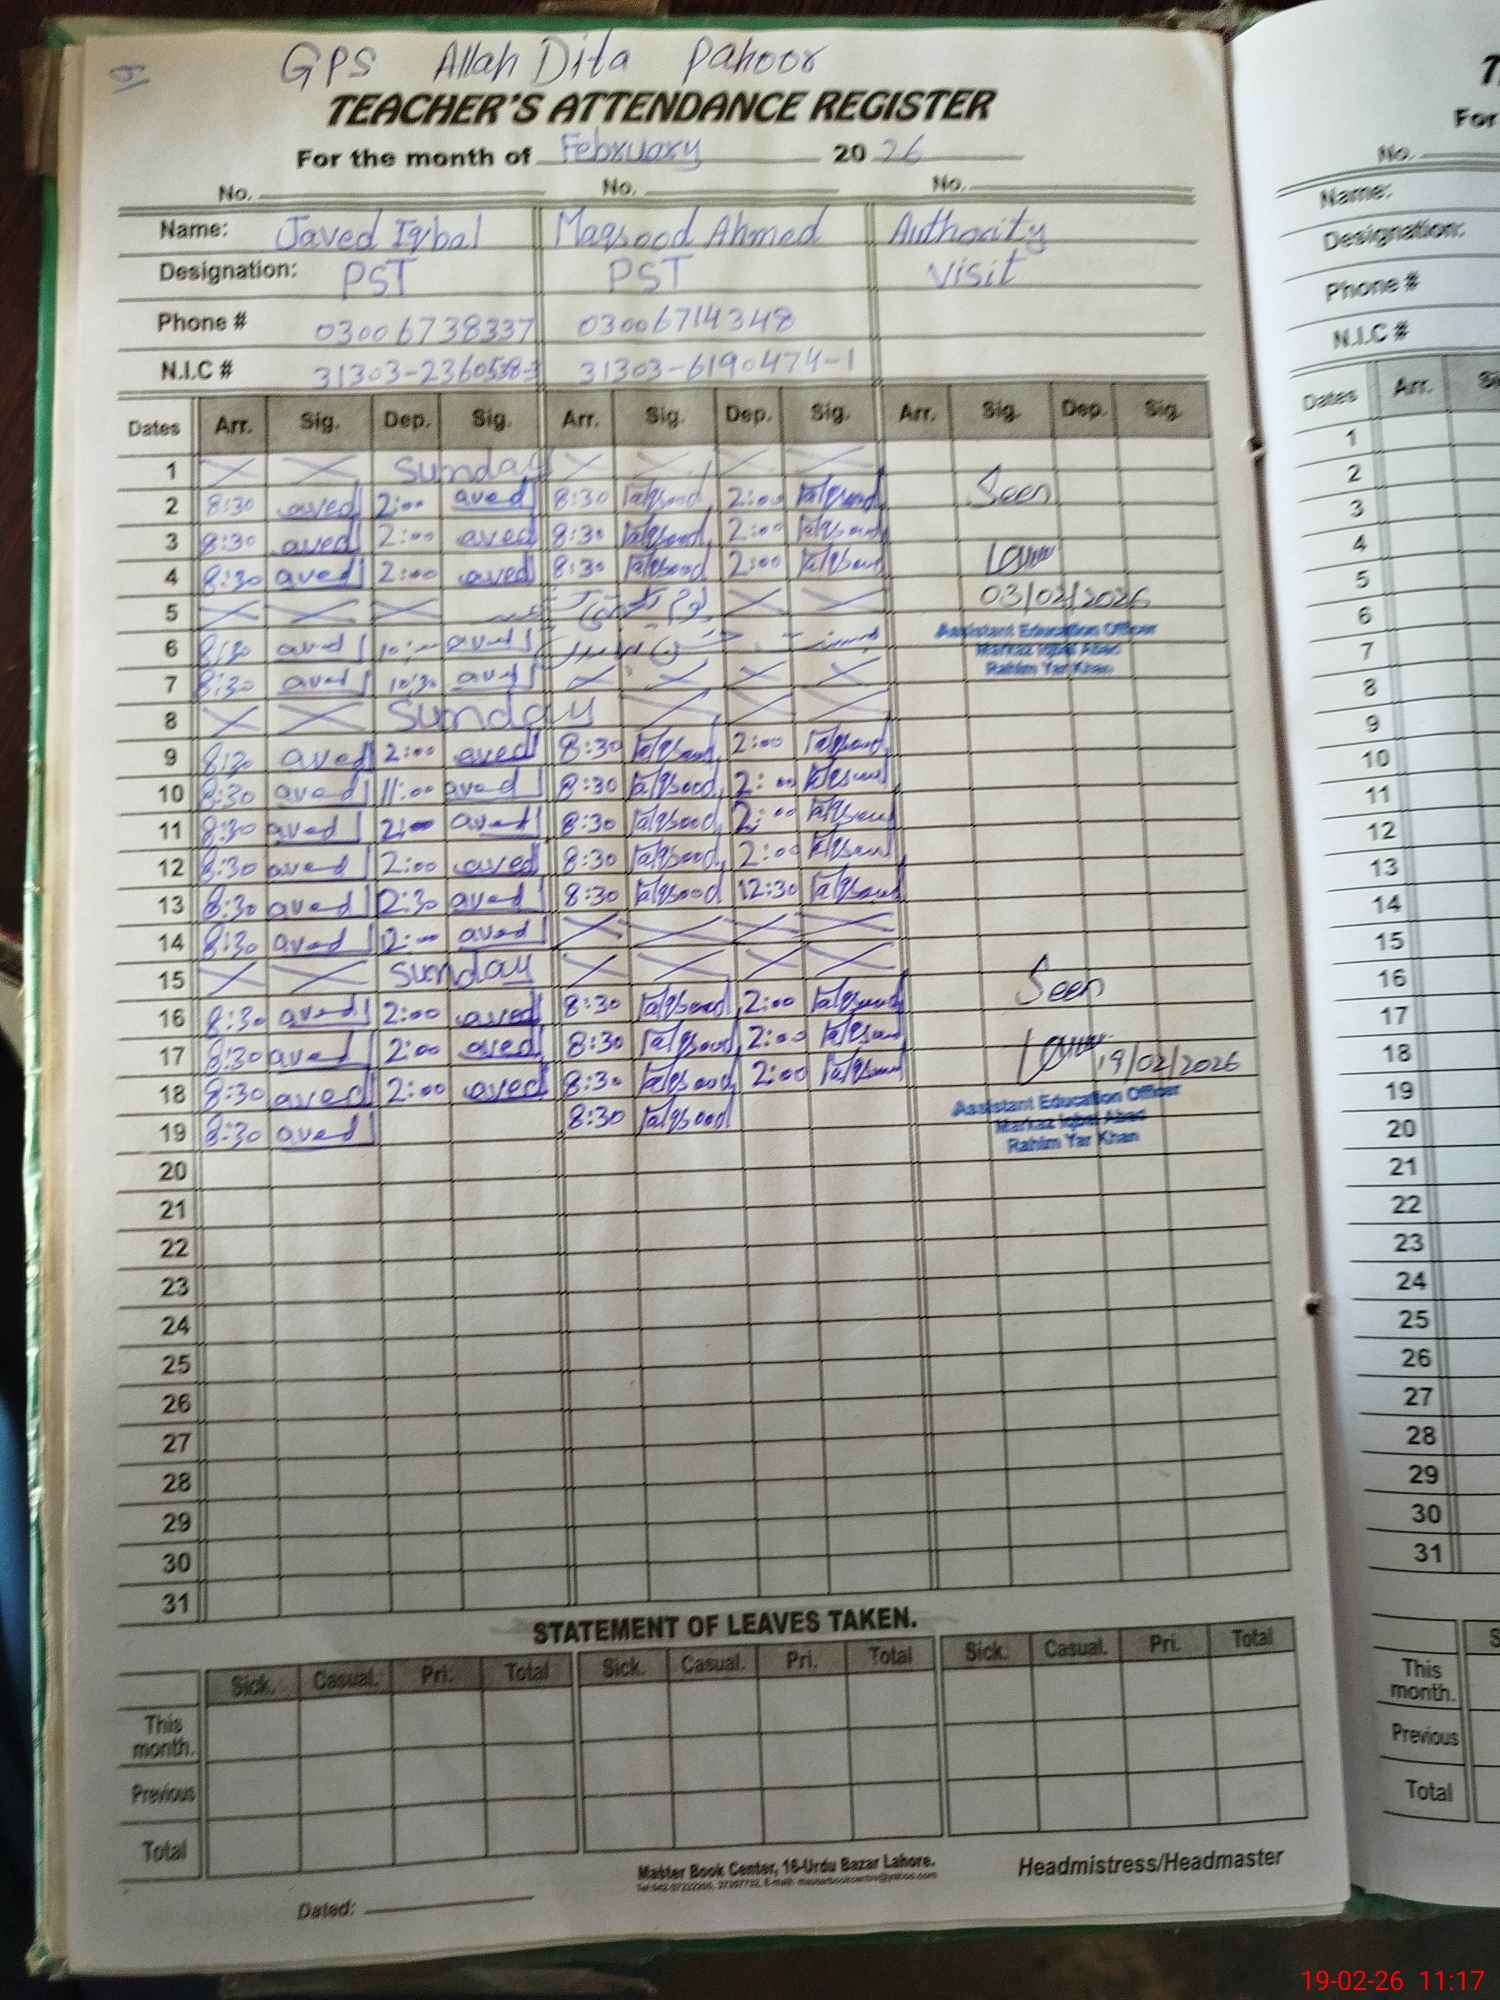 GPS Allah Dita Pahoor
TEACHER'S ATTENDANCE REGISTER
For the month of February 2026
No. No. No.
Name: Javed Iqbal Maqsood Ahmed Authority
Designation: PST PST Visit
Phone # 03006738337 03006714348
N.I.C # 31303-2360538-3 31303-6190474-1
Dates Arr. Sig. Dep. Sig. Arr. Sig. Dep. Sig. Arr. Sig. Dep. Sig.
1 Sunday
2 8:30 aved 2:00 aved 8:30 2:00 Seen
3 8:30 aved 2:00 aved 8:30 2:00
4 8:30 aved 2:00 aved 8:30 2:00
5 03/02/2026
6 8:30 aved aved Assistant Education Officer
Markaz Iqbal Abad
7 8:30 aved 10:30 aved Rahim Yar Khan
8 Sunday
9 8:30 aved 2:00 aved 8:30 2:00
10 8:30 aved 11:00 aved 8:30 2:00
11 8:30 aved 2:00 aved 8:30 2:00
12 8:30 aved 2:00 aved 8:30 2:00
13 8:30 aved 12:30 aved 8:30 12:30
14 8:30 aved 12:00 aved
15 Sunday Seen
16 8:30 aved 2:00 aved 8:30 2:00
17 8:30 aved 2:00 aved 8:30 2:00 19/02/2026
18 8:30 aved 2:00 aved 8:30 2:00 Assistant Education Officer
Markaz Iqbal Abad
19 8:30 aved 8:30 Rahim Yar Khan
20
21
22
23
24
25
26
27
28
29
30
31
STATEMENT OF LEAVES TAKEN.
Sick. Casual. Pri. Total Sick. Casual. Pri. Total Sick. Casual. Pri. Total
This month.
Previous
Total
Master Book Center, 16-Urdu Bazar Lahore.
Headmistress/Headmaster
Dated:
For
No.
Name:
Designation:
Phone #
N.I.C #
Dates Arr.
1
2
3
4
5
6
7
8
9
10
11
12
13
14
15
16
17
18
19
20
21
22
23
24
25
26
27
28
29
30
31
This month.
Previous
Total
19-02-26 11:17